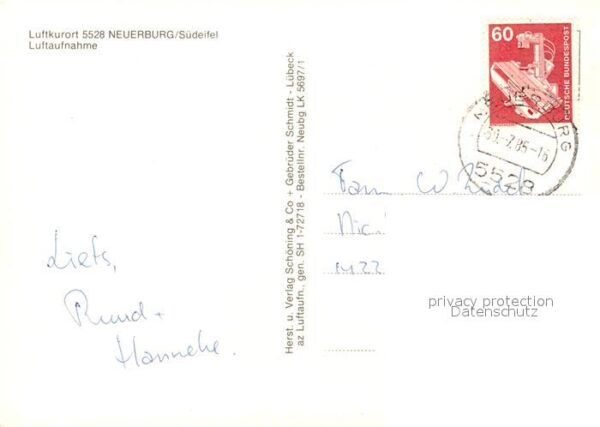 Luftkurort 5528 NEUERBURG/Südeifel
Luftaufnahme
60
DEUTSCHE BUNDESPOST
5528
Herst. u. Verlag Schöning & Co + Gebrüder Schmidt - Lübeck
az Luftaufn., gen. SH 1-72718 - Bestellnr. Neubg LK 5697/1
Fam W
Liefs,
Ruud +
Hanneke.
privacy protection
Datenschutz